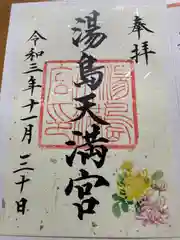 奉拝
湯島天満宮
令和三年十一月三十日